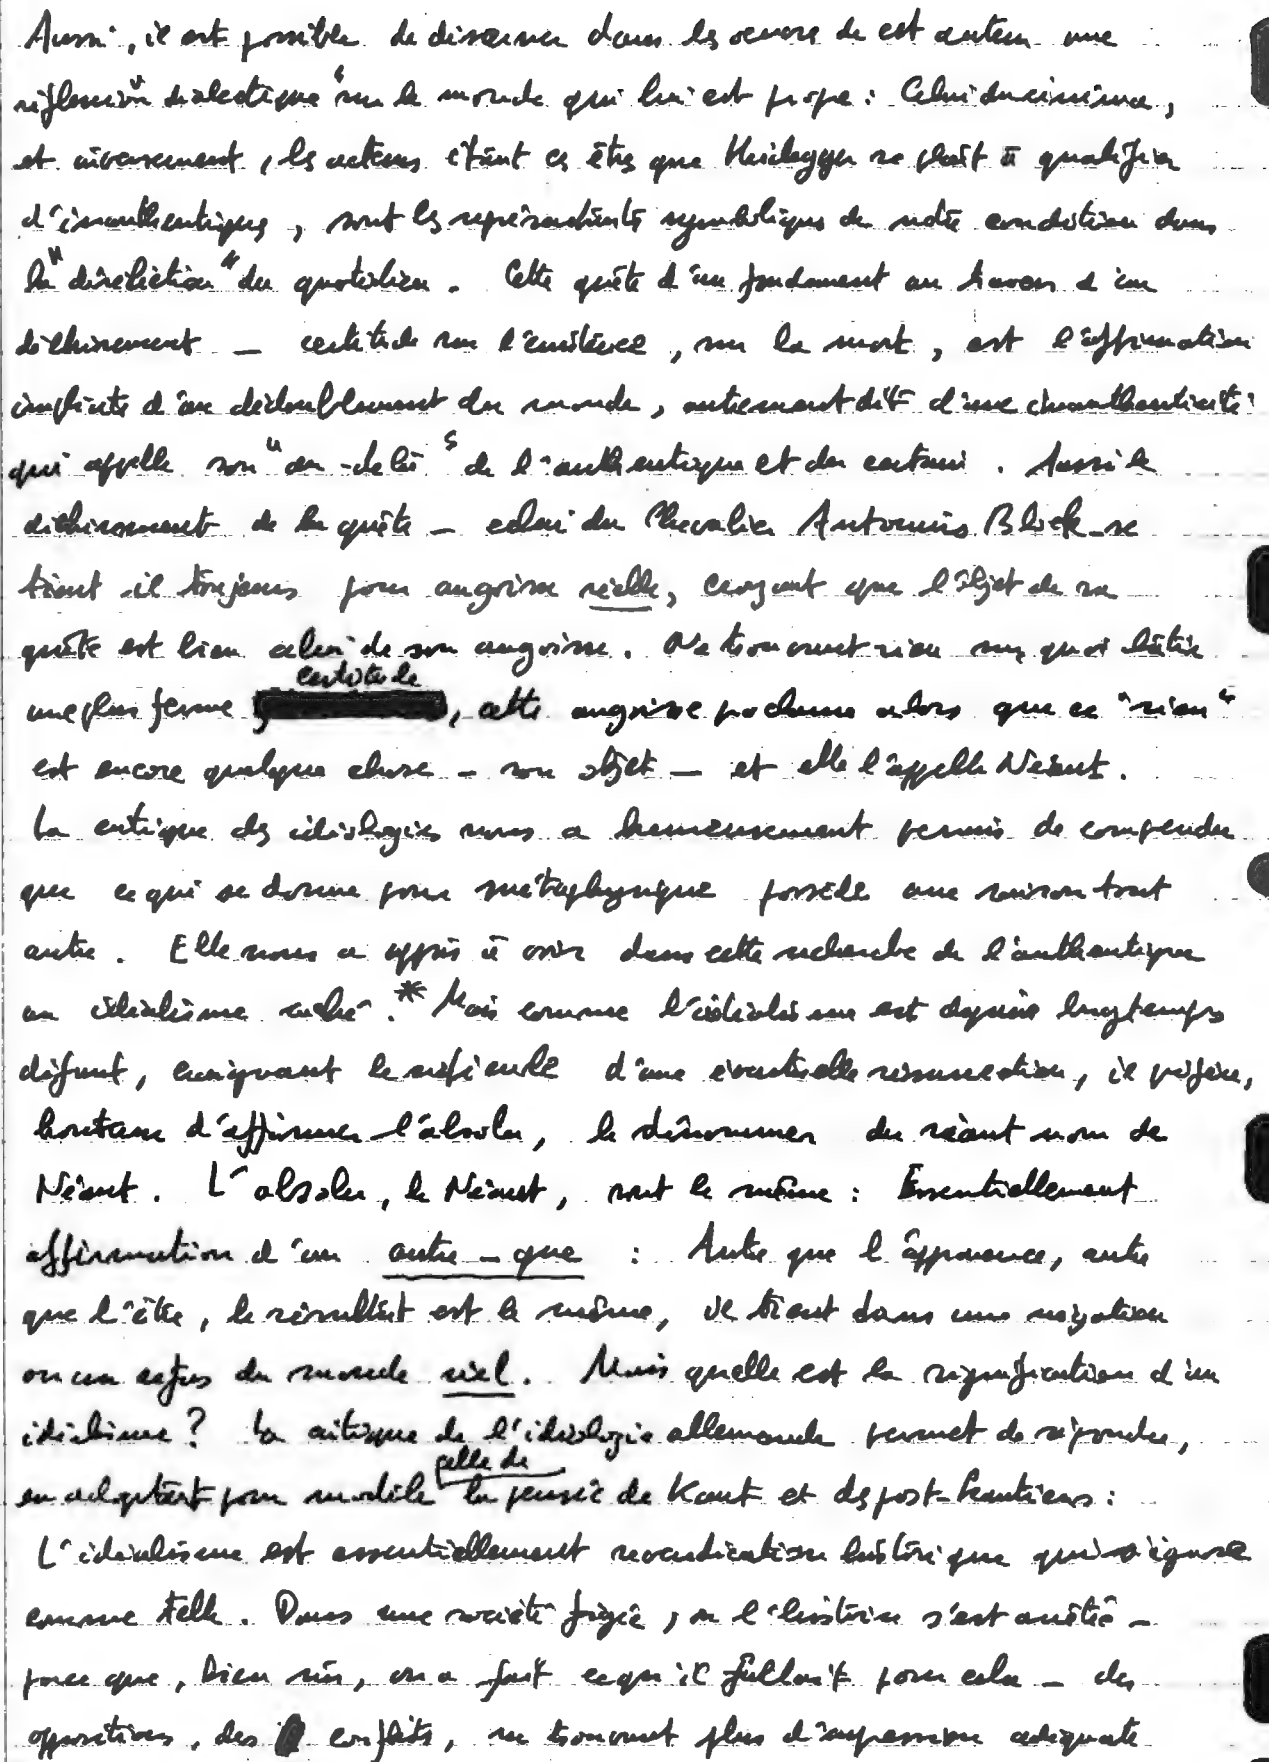 Aussi, il est possible de discerner dans les œuvres de cet auteur une
réflexion "dialectique" sur le monde qui lui est propre : Celui du cinéma,
et inversement, les acteurs étant ces êtres que Heidegger se plaît à qualifier
d'inauthentiques, sont les représentants symboliques de notre condition dans
la "déréliction" du quotidien. Cette quête d'un fondement au travers d'un
déchirement — certitude sur l'existence, sur la mort, est l'affirmation
implicite d'un dédoublement du monde, autrement dit d'une inauthenticité
qui appelle son "au-delà" de l'authentique et du certain. Aussi le
déchirement de la quête — celui du Chevalier Antonius Block — se
tient-il toujours pour angoisse réelle, croyant que l'objet de sa
quête est bien celui de son angoisse. Ne trouvant rien sur quoi bâtir
une plus ferme certitude, cette angoisse proclame alors que ce "rien"
est encore quelque chose — son objet — et elle l'appelle Néant.
La critique des idéologies nous a heureusement permis de comprendre
que ce qui se donne pour métaphysique possède une raison tout
autre. Elle nous a appris à voir dans cette recherche de l'authentique
un idéalisme caché.* Mais comme l'idéalisme est depuis longtemps
défunt, craignant le ridicule d'une éventuelle résurrection, il préfère,
honteux d'affirmer l'absolu, le dénommer du séant nom de
Néant. L'absolu, le Néant, sont le même : Essentiellement
affirmation d'un autre-que : Autre que l'apparence, autre
que l'être, le résultat est le même, il tient dans une négation
ou un refus du monde réel. Mais quelle est la signification d'un
idéalisme ? La critique de l'idéologie allemande permet de répondre,
en adoptant pour modèle celle de la pensée de Kant et des post-kantiens :
L'idéalisme est essentiellement revendication historique qui s'ignore
comme telle. Dans une société figée, où l'histoire s'est arrêtée —
parce que, bien sûr, on a fait ce qu'il fallait pour cela — des
oppositions, des conflits, ne trouvent plus d'expression adéquate